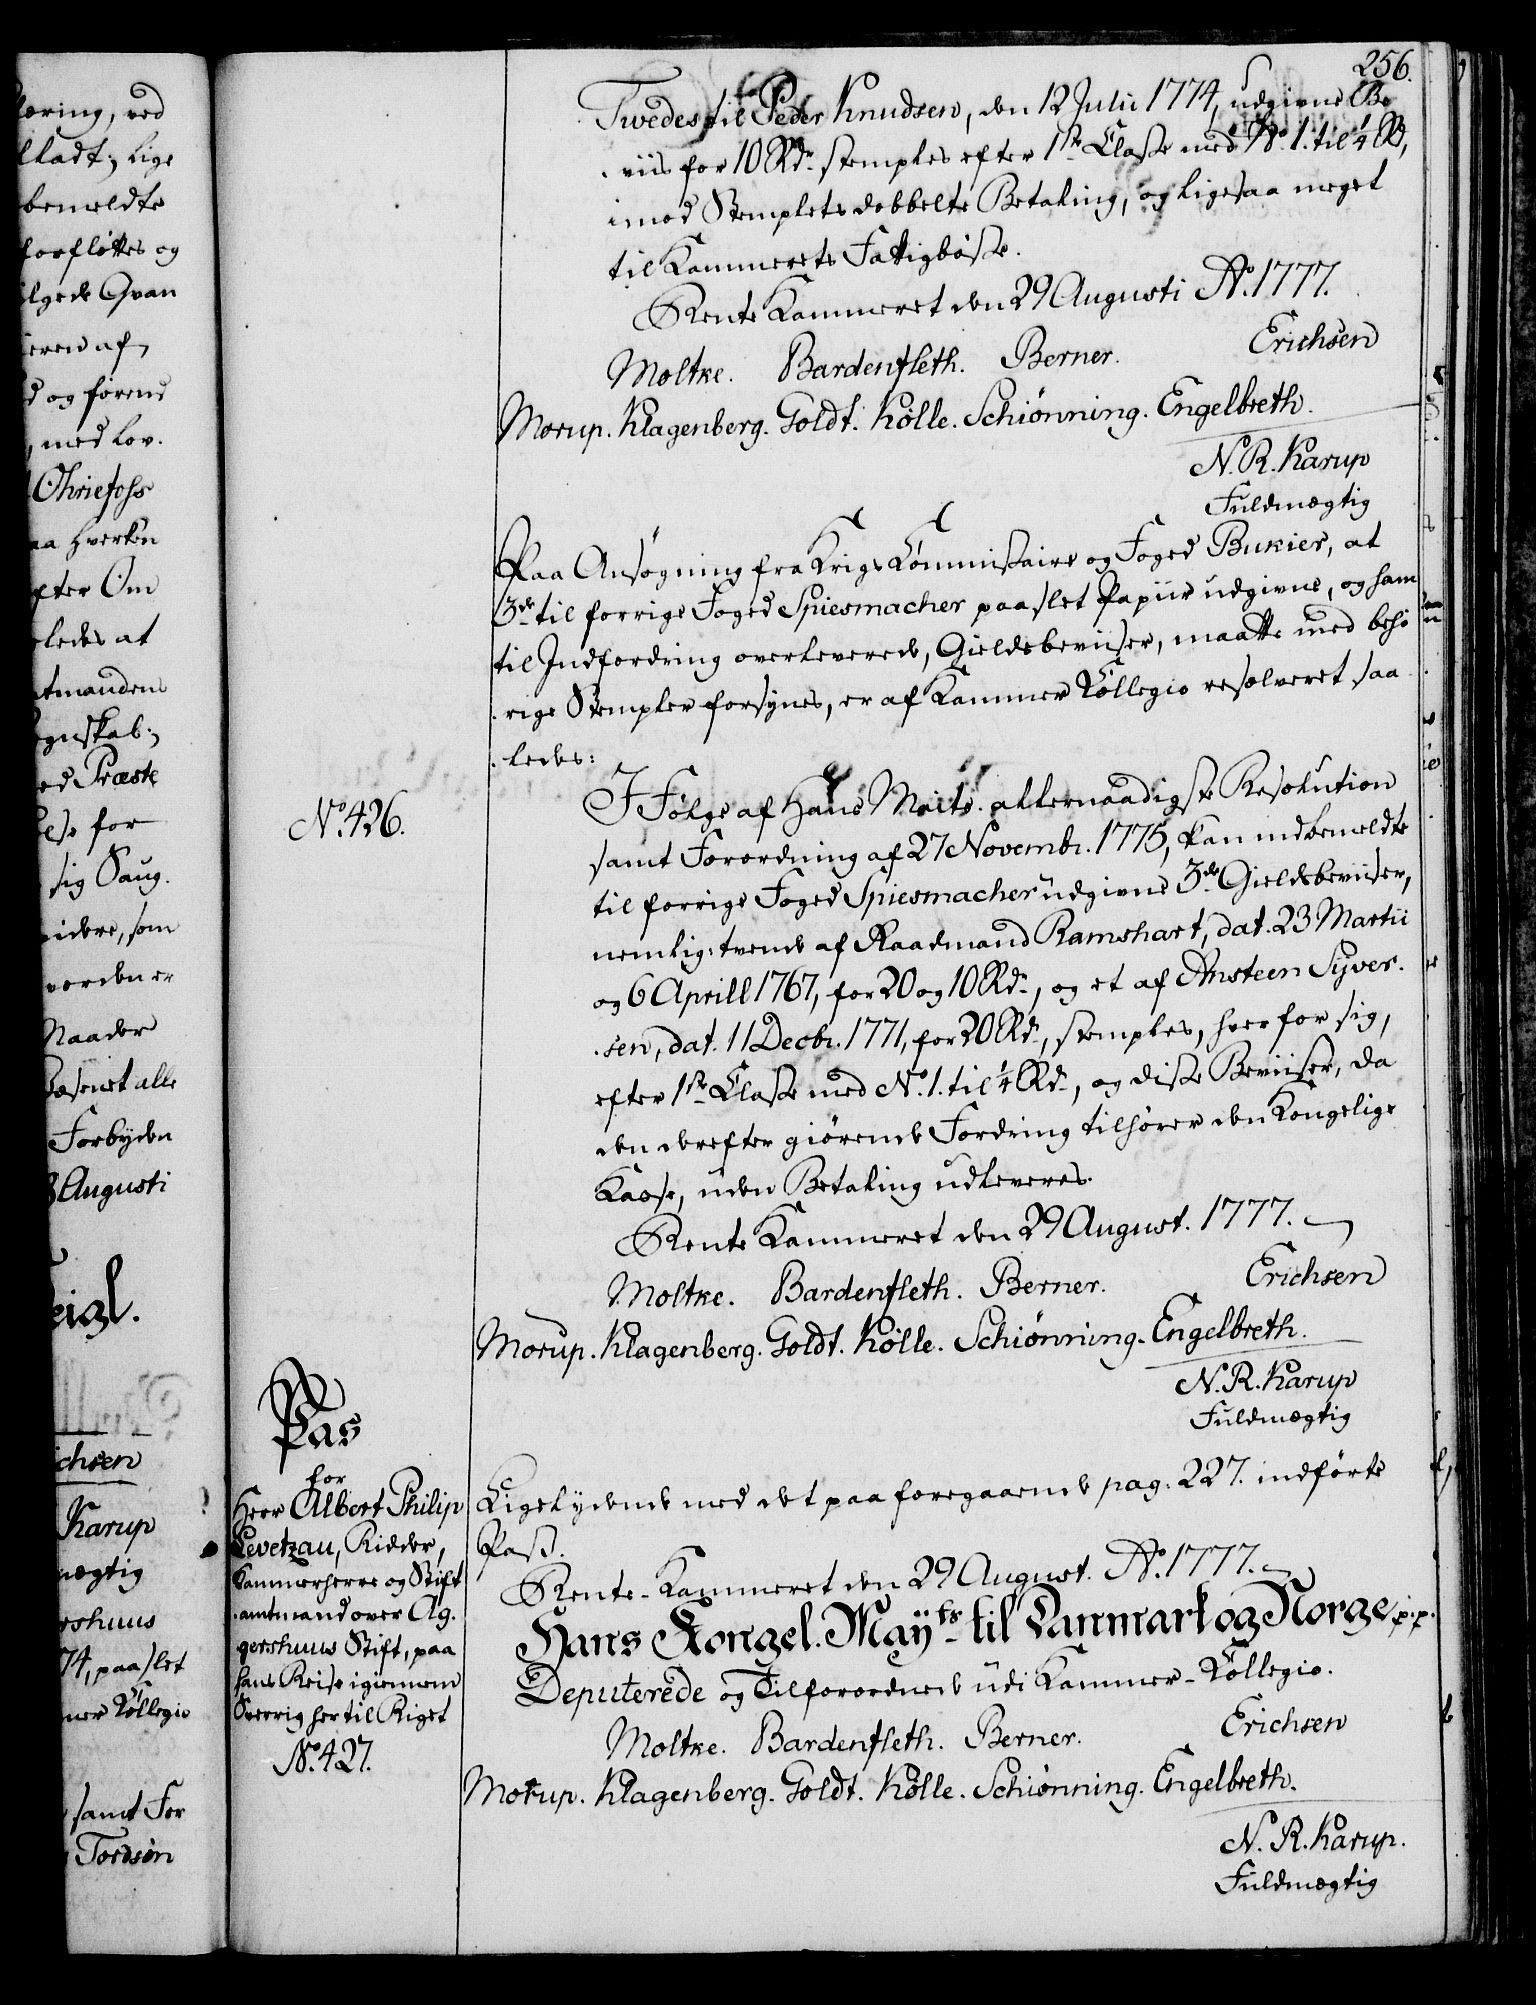 256.
Tvedes til Peder Knudsen, den 12 Julii 1774, udgivne Be
viis for 10 Rdr. stemples efter 1ste Classe med No. 1. til 1/4 Rd,
imod Stemplets dobbelte Betaling, og ligesaa meget
til Kammerets Fattigbøsse.
Rente Kammeret den 29 Augusti Ao. 1777.
Moltke. Bardenfleth. Berner. Erichsen
Morup. Klagenberg. Goldt. Kölle. Schiønning. Engelbreth.
N. R. Karup
Fuldmægtig
Paa Ansøgning fra Krigs Commissaire og Foged Bukier, at
3de til forrige Foged Spiesmacher paa slet Papiir udgivne, og ham
til Indfordring overleverede, Gieldsbeviiser, maatte med behø
rige Stempler forsynes, er af Kammer Collegio resolveret saa
ledes:
No. 426.
I Følge af Hans Maits. allernaadigste Resolution
samt Forordning af 27 Novembr. 1775, kan indbemeldte
til forrige Foged Spiesmacher udgivne 3de Gieldsbeviiser,
nemlig: tvende af Raadmand Ramshart, dat. 23 Martii
og 6 Aprill 1767, for 20 og 10 Rdr, og et af Ansteen Syver
sen, dat. 11 Decbr. 1771, for 20 Rdr, stemples, hver for sig,
efter 1ste Classe med No. 1. til 1/4 Rdr, og disse Beviiser, da
den derefter giørende Fordring tilhører den Kongelige
Kasse, uden Betaling udleveres.
Rente Kammeret den 29 August. 1777.
Moltke. Bardenfleth. Berner. Erichsen
Morup. Klagenberg. Goldt. Kölle. Schiønning. Engelbreth.
N. R. Karup
Fuldmægtig
Pas
for
Herr Albert Philip
Levetzau, Ridder,
Kammerherre og Stift
amtmand over Ag
gershuus Stift, paa
hans Reise igiennem
Sverrig her til Riget
No. 427.
Ligelydende med det paa foregaaende pag. 227. indførte
Pass.
Rente-Kammeret den 29 August. Ao. 1777.
Hans Kongel. Mayts. til Danmark og Norge p.p.
Deputerede og Tilforordnede udi Kammer-Collegio.
Moltke. Bardenfleth. Berner. Erichsen
Morup. Klagenberg. Goldt. Kölle. Schiønning. Engelbreth.
N. R. Karup.
Fuldmægtig